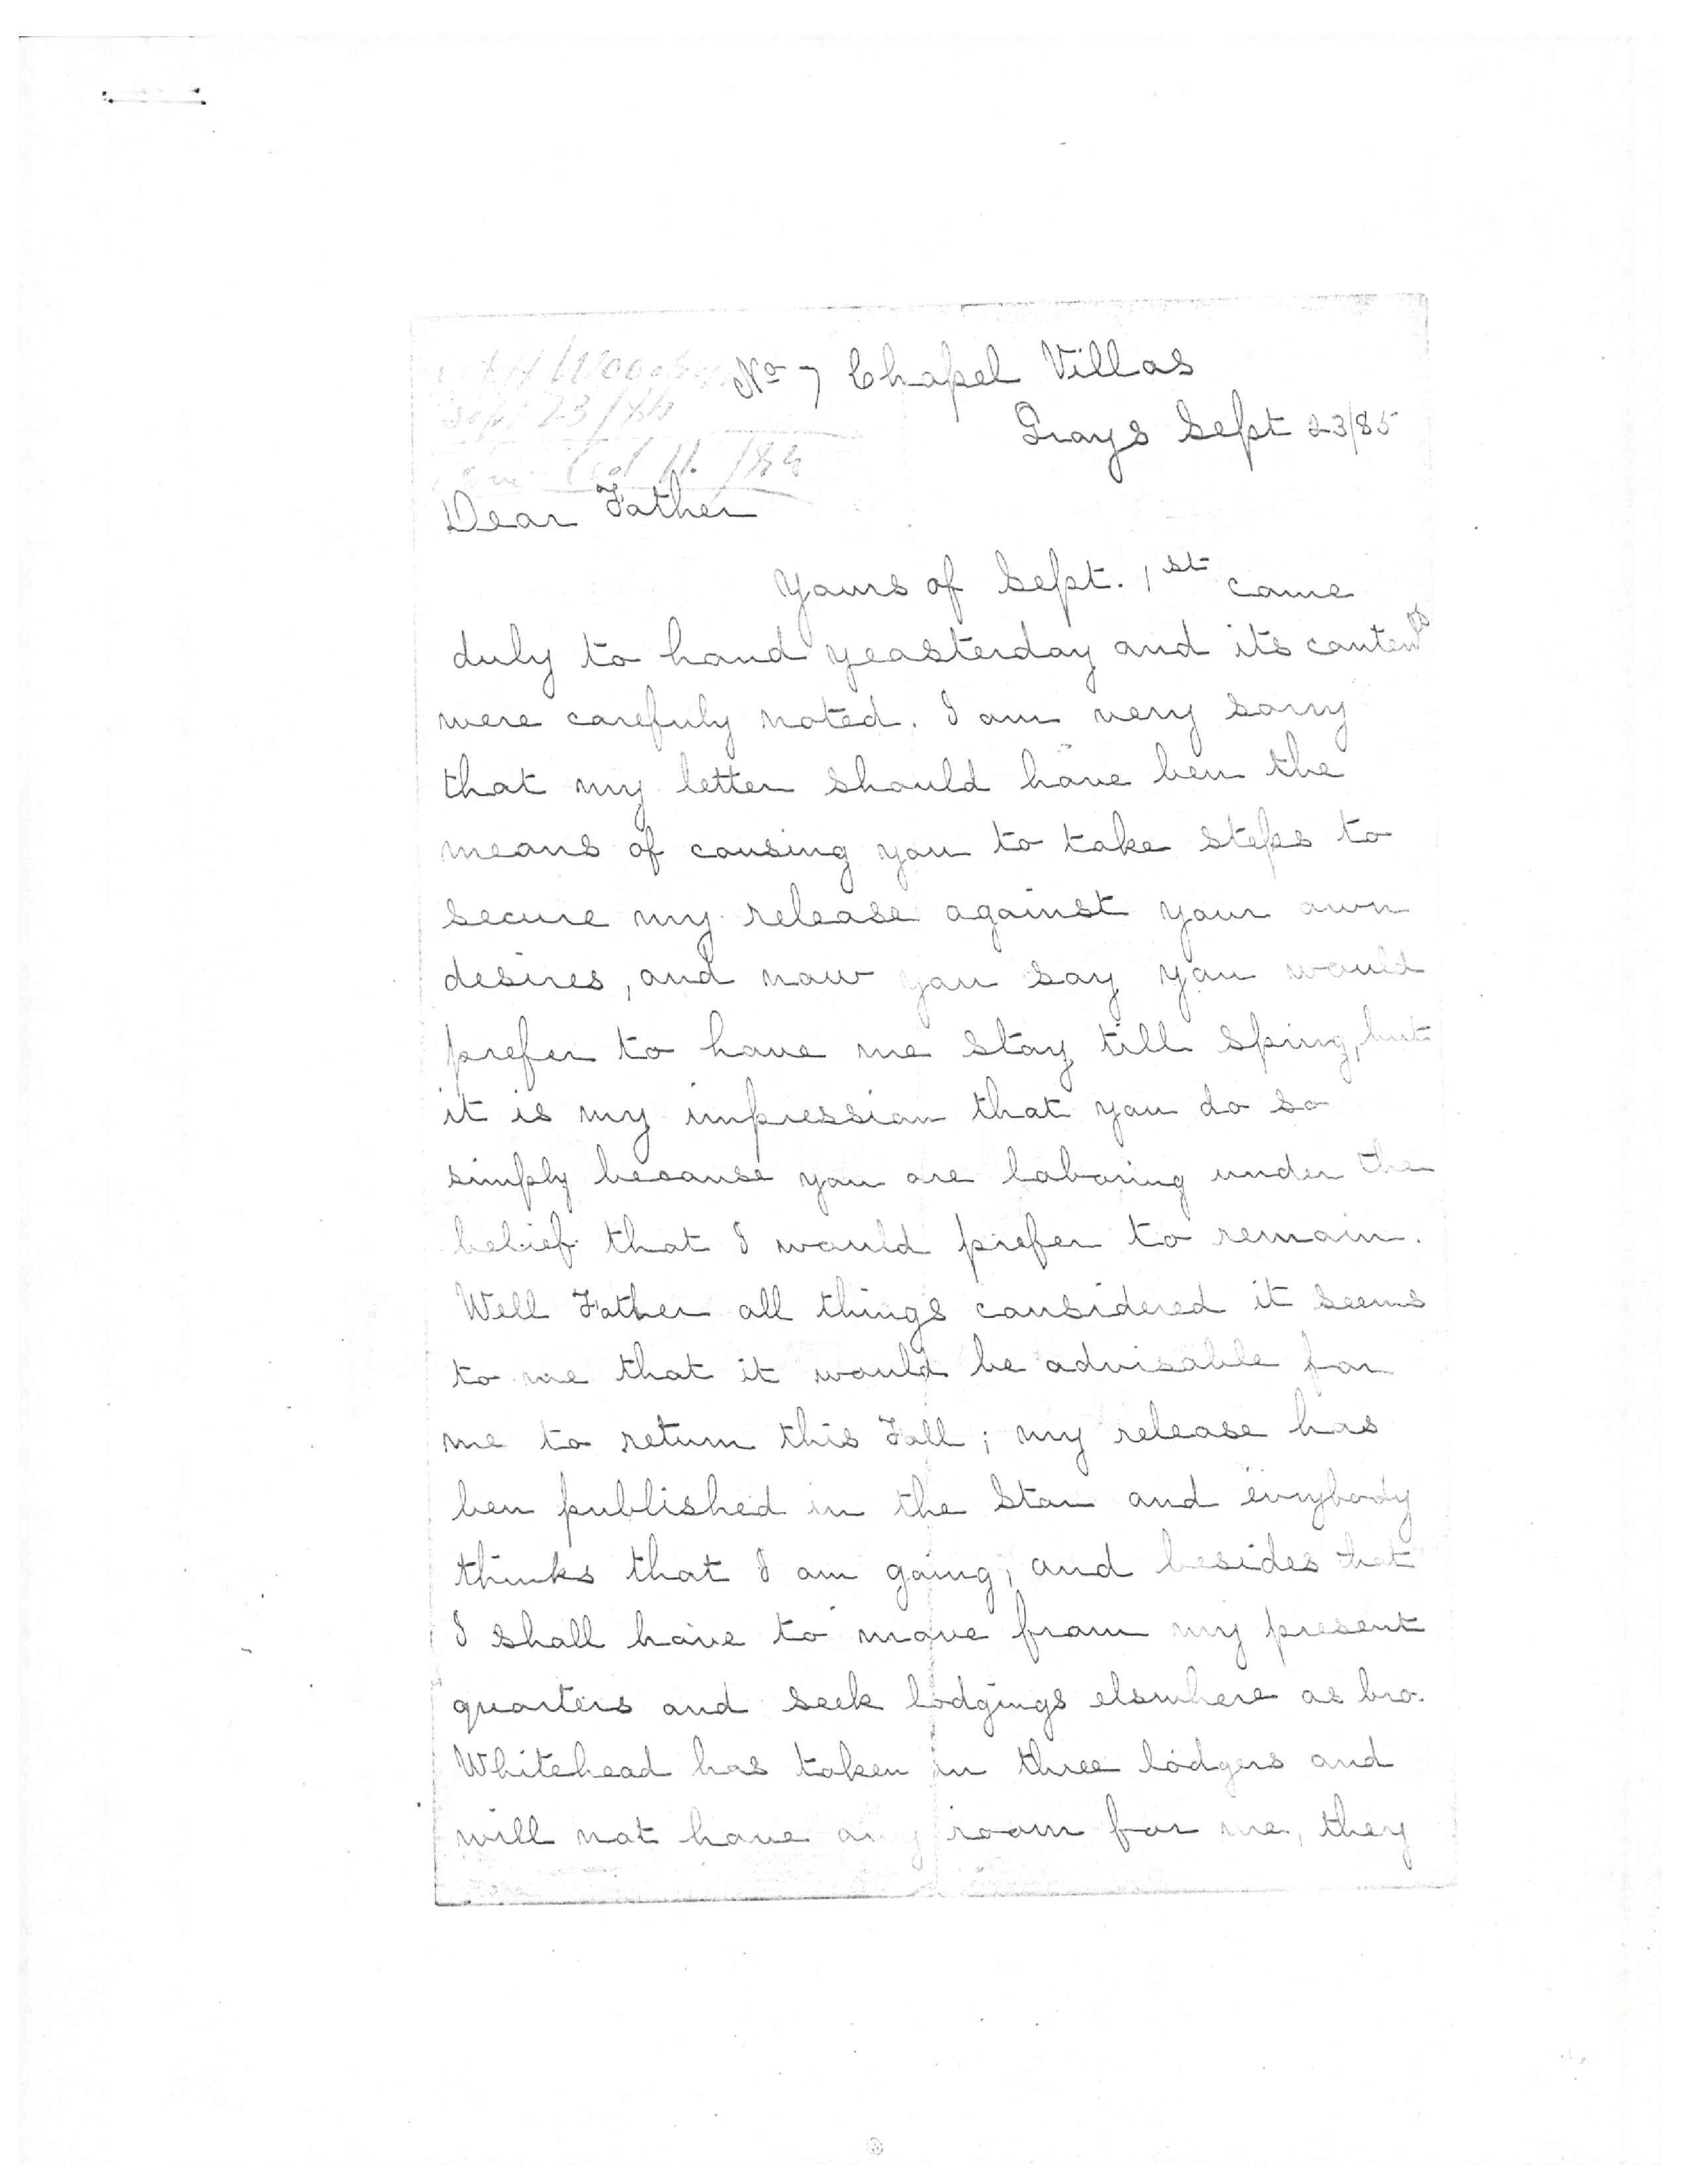 No 7 Chapel Villas
Sept 23/85
Grays Sept 23/85
Dear Father
Yours of Sept. 1st came
duly to hand yeasterday and its contents
were carefuly noted. I am very sorry
that my letter should have ben the
means of causing you to take steps to
secure my release against your own
desires, and now you say you would
prefer to have me stay till Spring, but
it is my impression that you do so
simply because you are laboring under the
belief that I would prefer to remain.
Well Father all things considered it seems
to me that it would be advisable for
me to return this Fall; my release has
ben published in the Star and evrybody
thinks that I am going; and besides that
I shall have to move from my present
quarters and seek lodgings elswhere as bro.
Whitehead has taken in three lodgers and
will not have any room for me, they